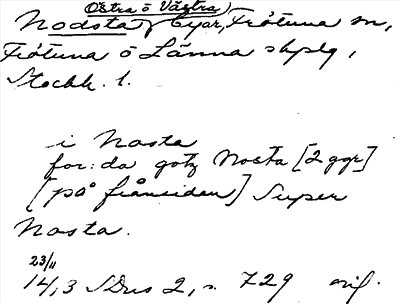 Östra o Västra
Nodsta byar, Frötuna sn,
Frötuna o Länna skplg,
Stockh. l.
i Nosta
for: da gotz Nosta [2 ggr]
[på frånsidan] Super
Nosta.
23/11
1413 SDns 2, s. 729 orig.